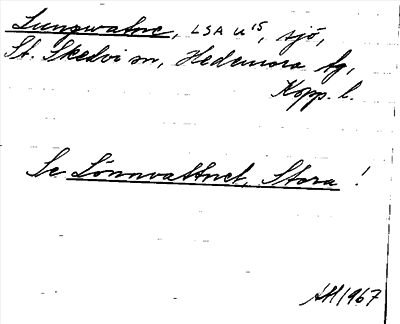 Lungwatne, LSA u¹⁵, sjö,
St. Skedvi sn, Hedemora tg,
Kopp. l.
Se Lönnvattnet, Stora!
AH 1967